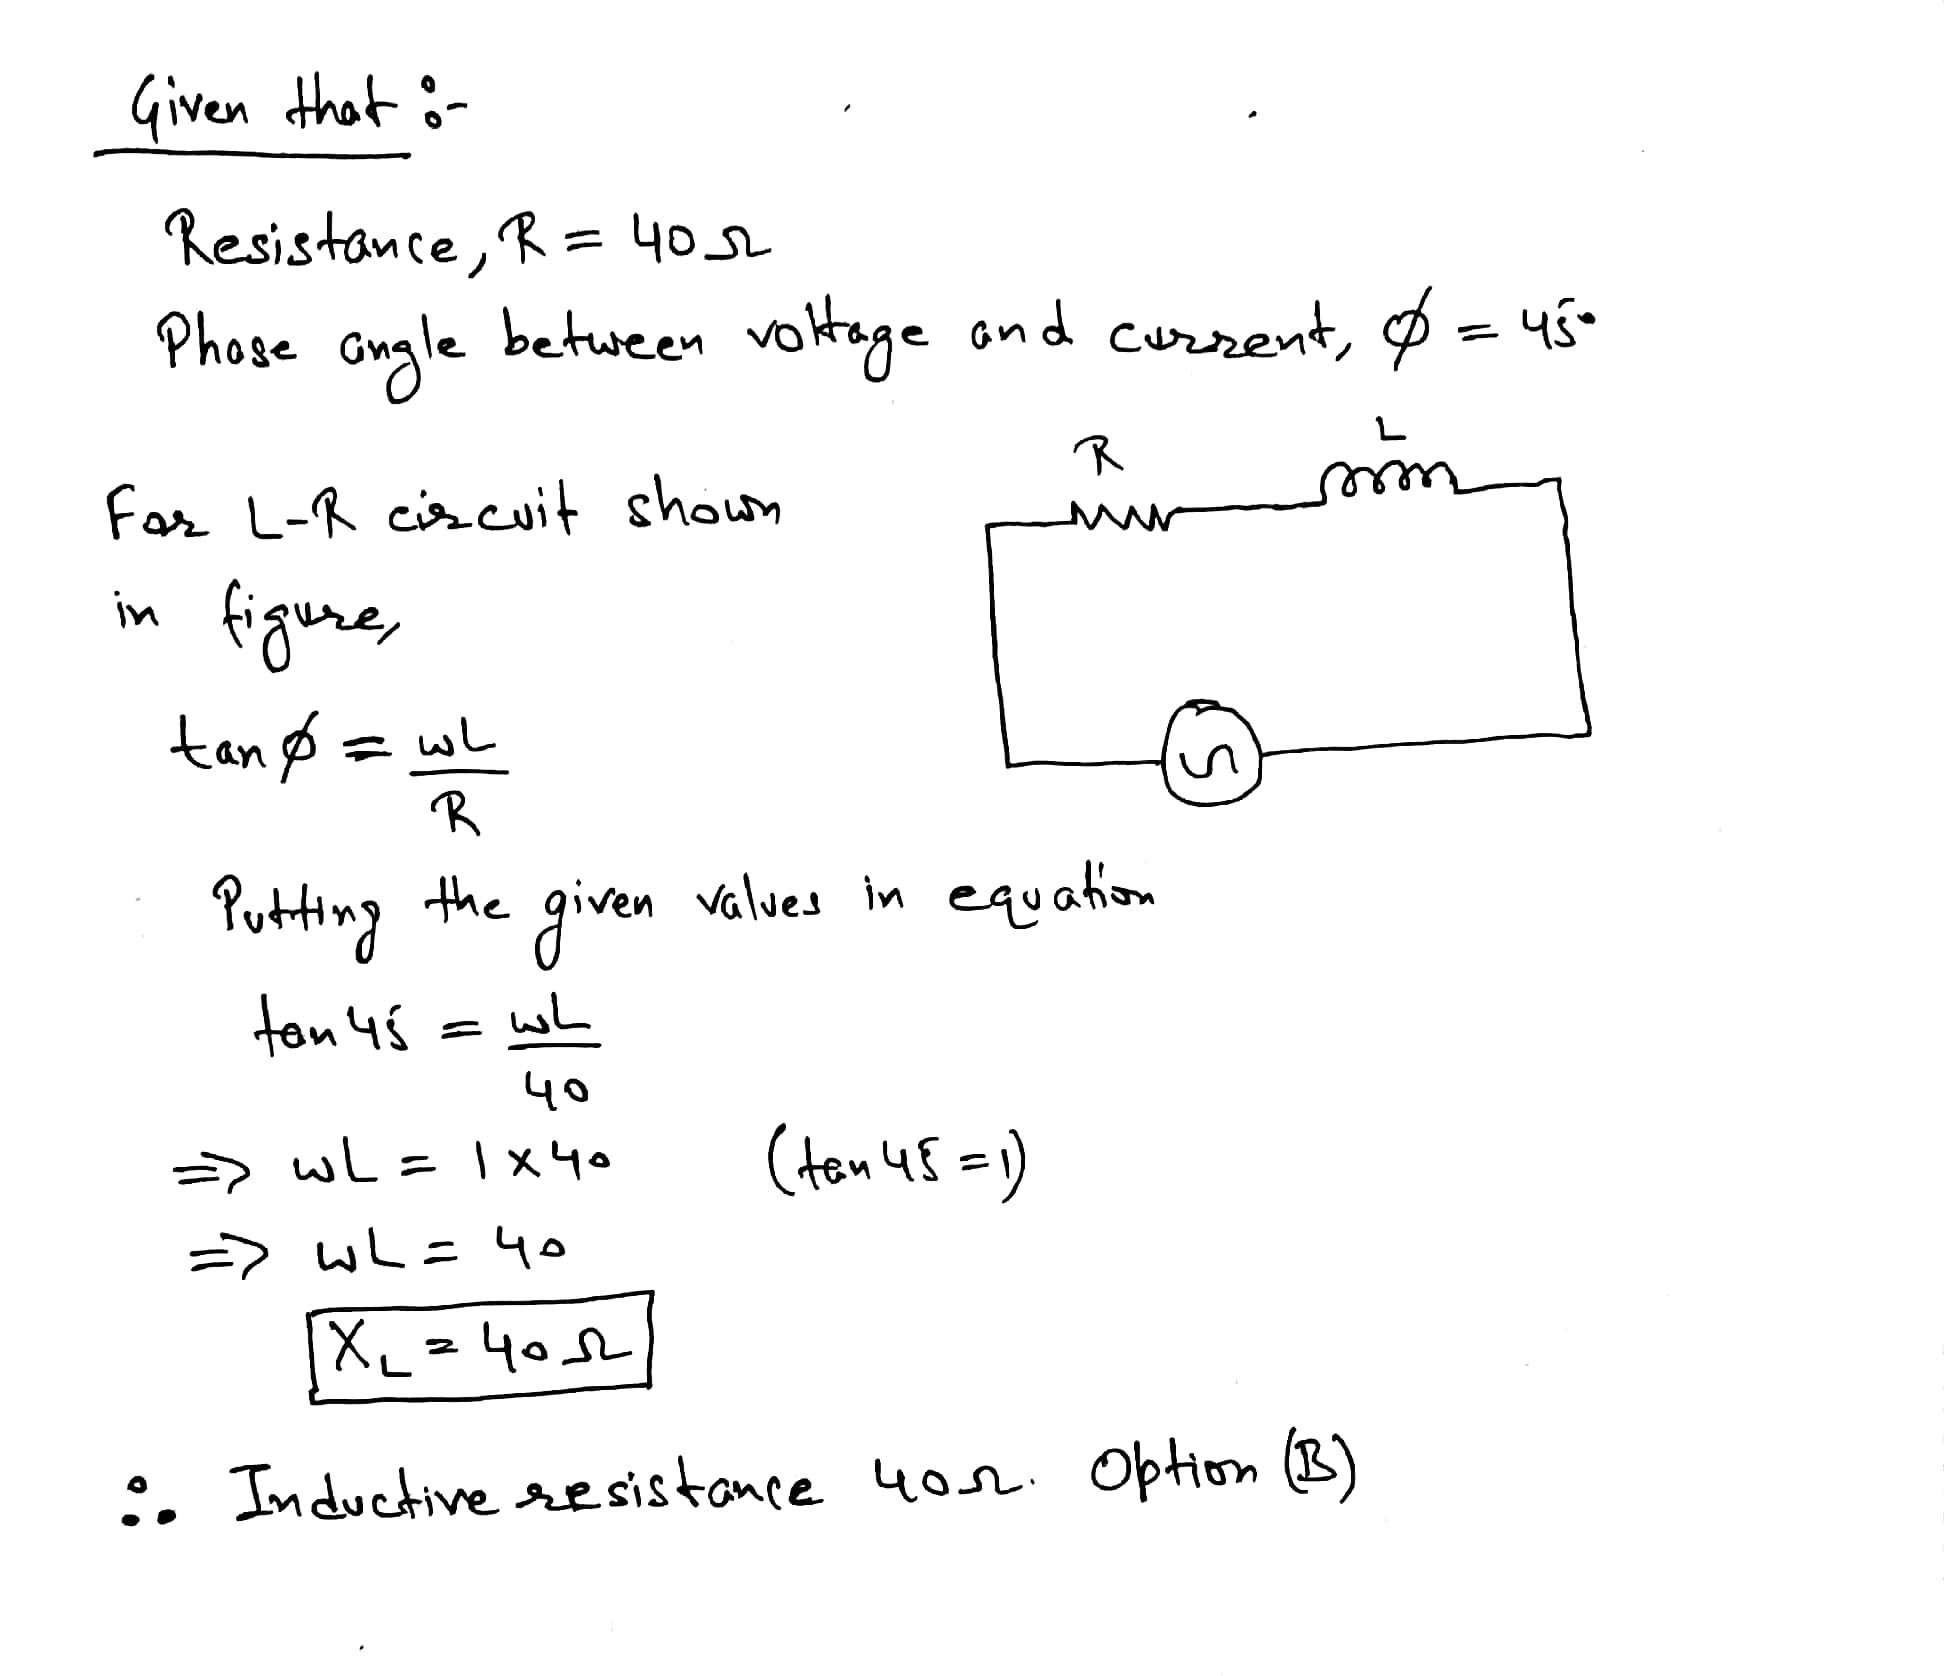 Given that :-
Resistance, R = 40Ω
Phase angle between voltage and current, ϕ = 45°
R
L
For L-R circuit shown
in figure,
tanϕ = ωL
R
Putting the given values in equation
tan 45 = ωL
40
=> ωL = 1 × 40 (tan 45 = 1)
=> ωL = 40
X_L = 40Ω
∴ Inductive resistance 40Ω. Option (B)